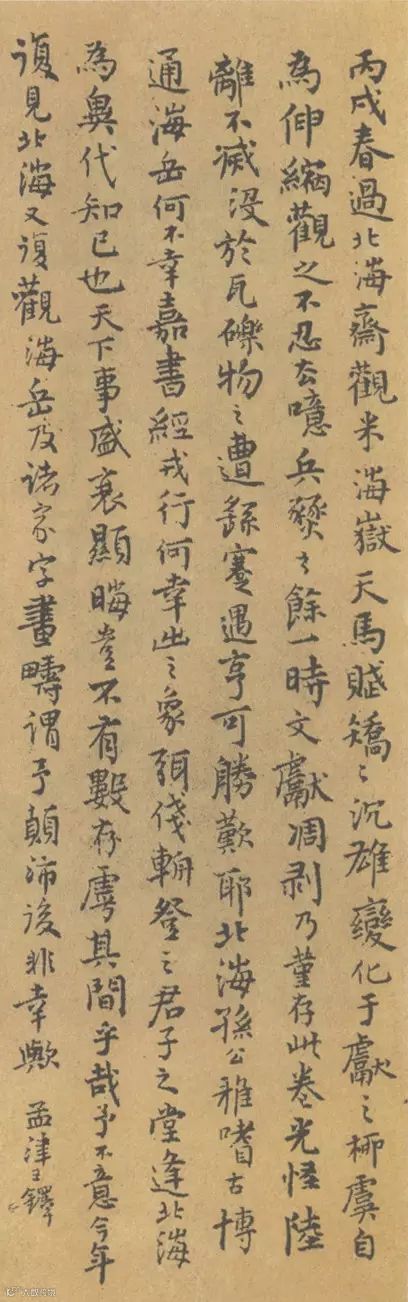 丙戌春過北海齋觀米海嶽天馬賦矯〻沉雄變化于獻之柳虞自
為伸縮觀之不忍去噫兵燹之餘一時文獻凋剥乃堇存此卷光怪陸
離不滅沒於瓦礫物之遭繇蹇遇亨可勝歎耶北海孫公雅嗜古博
通海岳何不幸嘉書經戎行何幸出之象弭俴輈登之君子之堂逢北海
為異代知已也天下事盛衰顯晦豈不有數存虖其間乎哉予不意今年
復見北海又復觀海岳及諸家字畫疇謂予顛沛後非幸歟 孟津王鐸